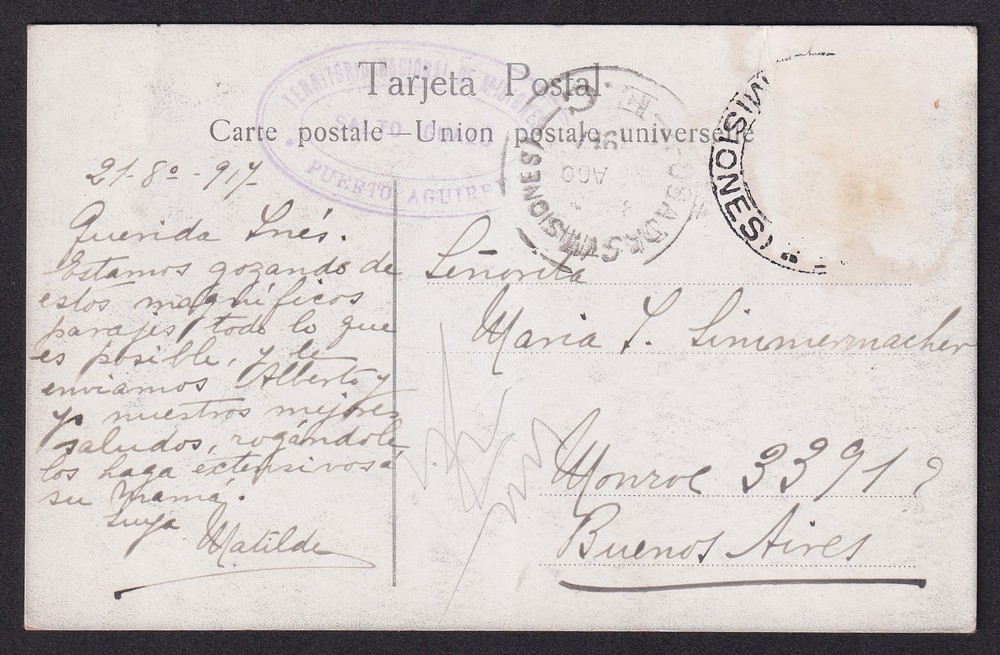 Tarjeta Postal
Carte postale—Union postale universelle
TERRITORIO NACIONAL DE MISIONES
SALTO
PUERTO AGUIRRE
POSADAS (MISIONES)
AGO
(MISIONES)
21-8º-917
Querida Inés.
Estamos gozando de
estos magníficos
parajes, todo lo que
es posible, y le
enviamos Alberto y
yo nuestros mejores
saludos, rogándole
los haga extensivos á
su mamá.
Suya
Matilde
Señorita
Maria I. Simmermacher
Monroe 3391
Buenos Aires